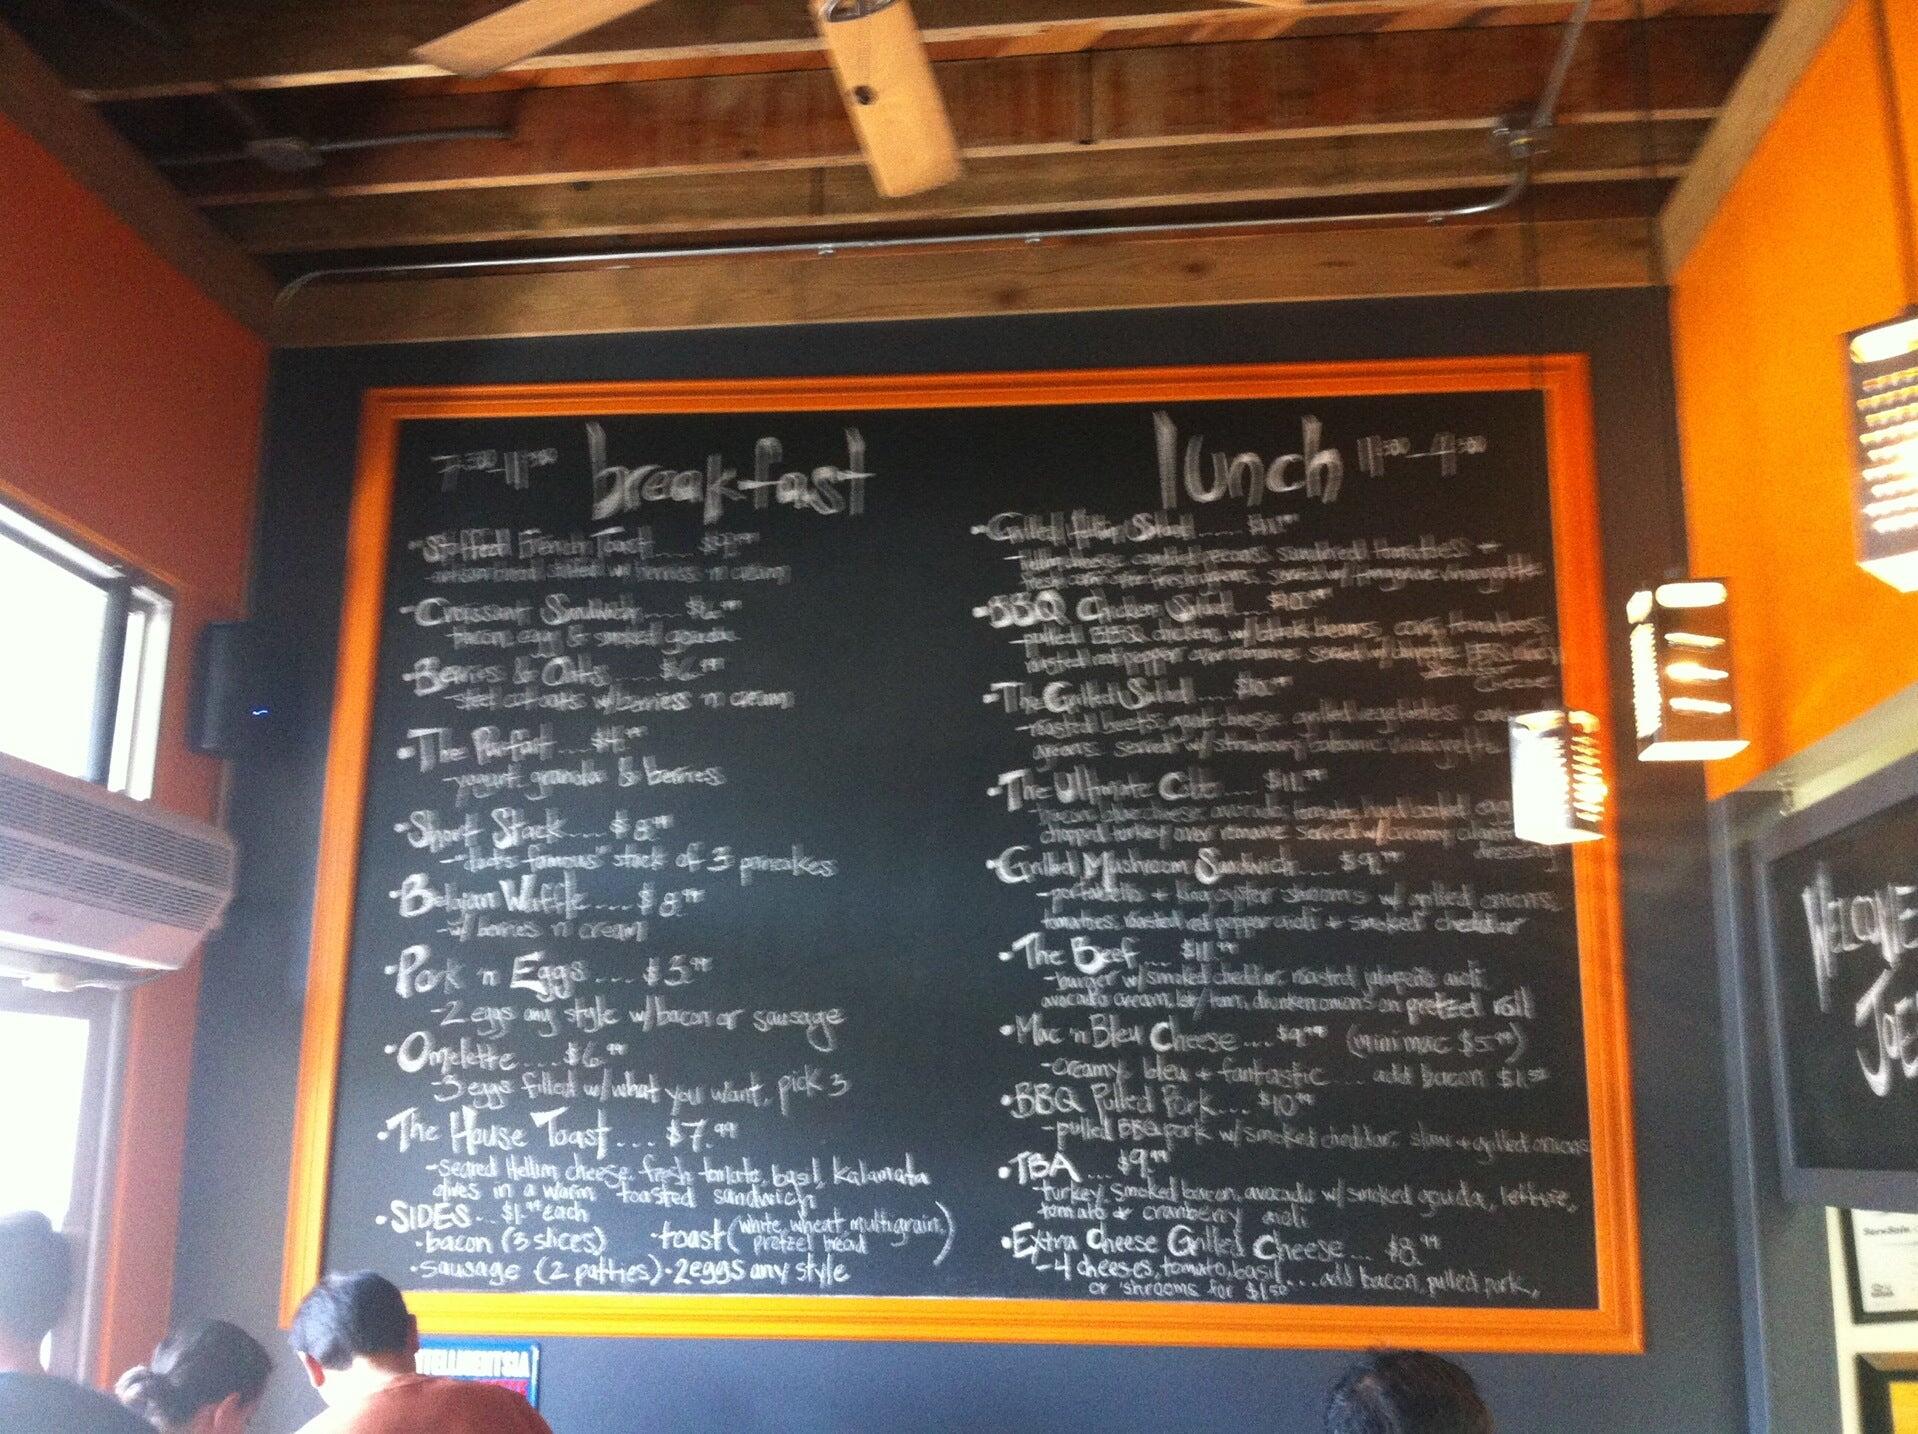 7:00-11:00 breakfast
·Stuffed French Toast
w/ berries 'n cream
·Croissant Sandwich....$6.99
-bacon, egg & smoked gouda
·Berries & Oats......$6.99
-steel cut oats w/ berries 'n cream
·The Parfait...$4.99
-yogurt, granola & berries
·Short Stack....$8.99
famous" stack of 3 pancakes
·Belgian Waffle....$8.99
-w/ berries 'n cream
·Pork 'n Eggs....$5.99
-2 eggs any style w/bacon or sausage
·Omelette....$6.99
-3 eggs filled w/what you want, pick 3
·The House Toast...$7.99
-seared Hellim cheese, fresh tomato, basil, kalamata
olives in a warm toasted sandwich
·SIDES...$1.99 each
·bacon (3 slices) ·toast (white, wheat, multigrain,
pretzel bread)
·sausage (2 patties) ·2 eggs any style
lunch 11:00-4:00
·Grilled Salad.....$11.99
cheese, candied pecans, sundried tomatoes +
served w/ vinaigrette
·BBQ Chicken Salad...$10.99
-pulled BBQ chicken, w/ black beans, corn, tomatoes,
roasted red pepper over romaine served w/
Cheese
·The Grilled Salad.....$10.99
-roasted beets, goat cheese, grilled vegetables over
greens served w/ strawberry balsamic vinaigrette
·The Ultimate Cobb...$11.99
-bacon, blue cheese, avocado, tomato, hard boiled egg,
chopped turkey over romaine served w/ creamy cilantro
dressing
·Grilled Mushroom Sandwich....$9.99
-portabello + king oyster shrooms w/ grilled onions,
tomatoes, roasted red pepper aioli + smoked cheddar
·The Beef...$11.99
-burger w/smoked cheddar, roasted jalapeño aioli,
avocado cream, let/tom, drunken onions on pretzel roll
·Mac 'n Bleu Cheese....$9.99 (mini mac $5.99)
-creamy, bleu + fantastic... add bacon $1.50
·BBQ Pulled Pork....$10.99
-pulled BBQ pork w/smoked cheddar, slaw + grilled onions
·TBA...$9.99
turkey, smoked bacon, avocado w/smoked gouda, lettuce,
tomato + cranberry aioli
·Extra Cheese Grilled Cheese...$8.99
-4 cheeses, tomato, basil....add bacon, pulled pork,
or 'shrooms for $1.50
WELCOME
JOE
TELLIGENTSIA
ServSafe